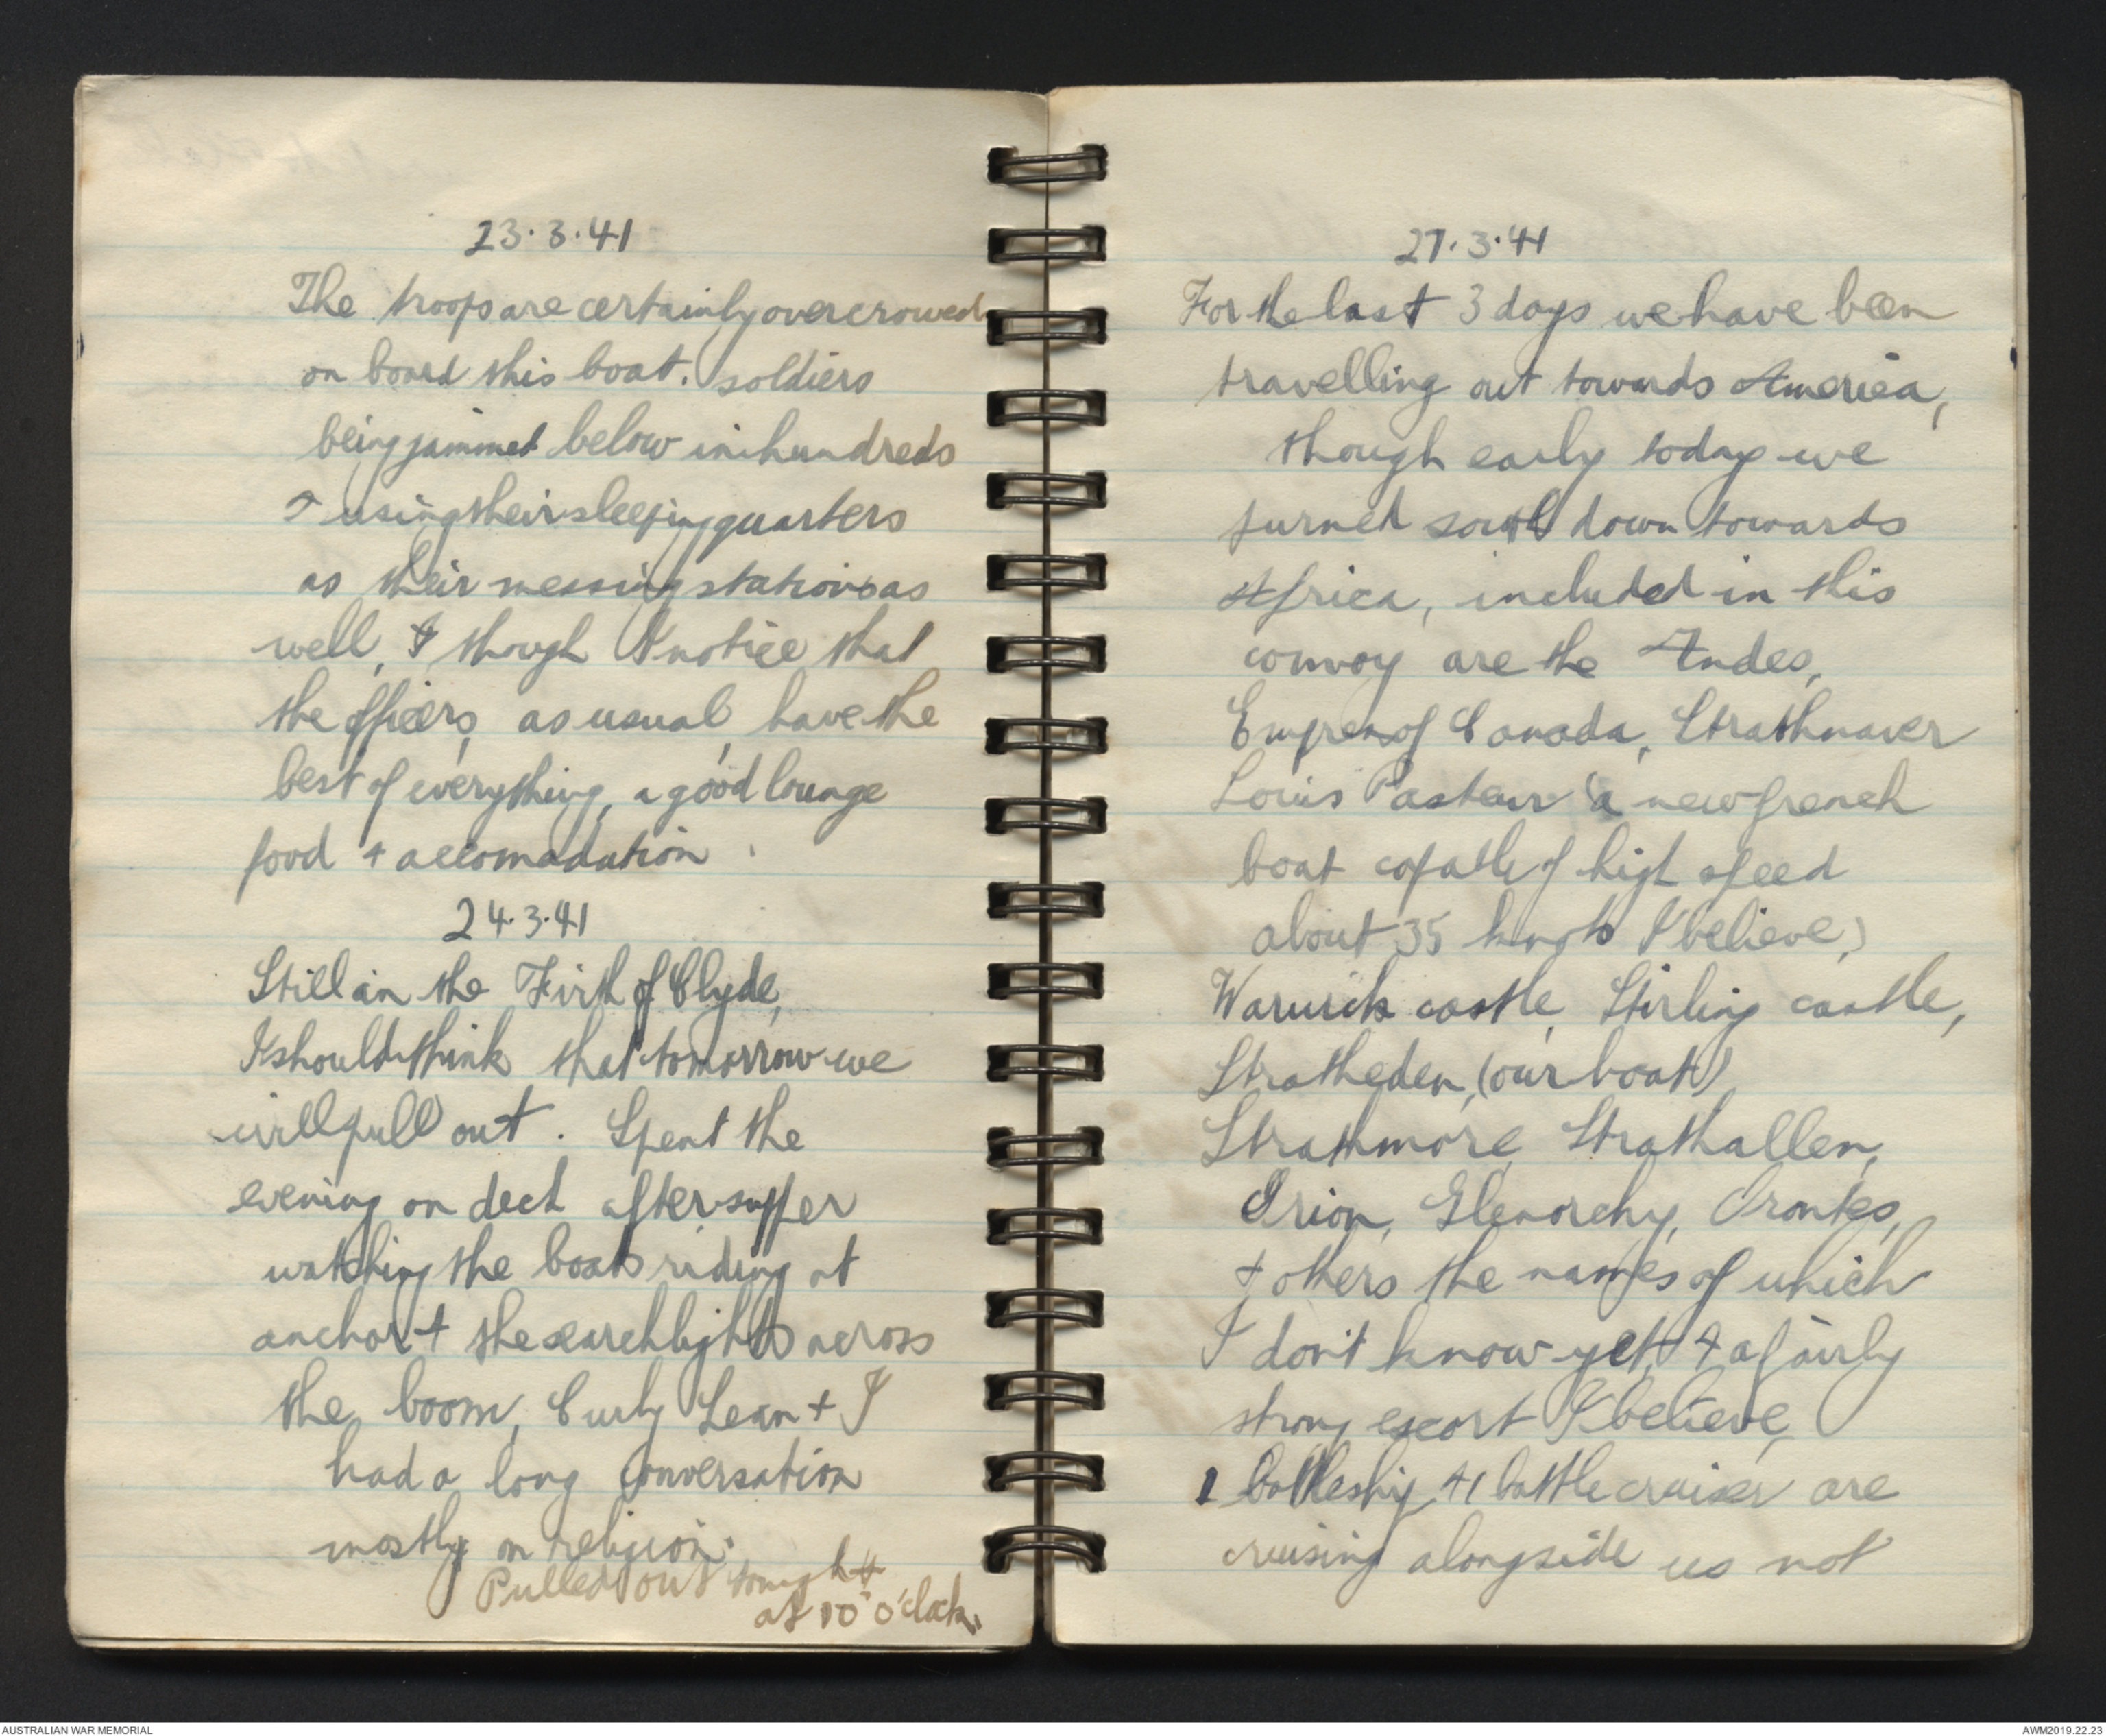 23.3.41
The troops are certainly overcrowed
on board this boat. soldiers
being jammed below in hundreds
+ using their sleeping quarters
as their messing stations as
well, & though I notice that
the officers, as usual, have the
best of everything, a good lounge
food + accomadation.
24.3.41
Still in the Firth of Clyde,
I should think that tomorrow we
will pull out. Spent the
evening on deck after supper
watching the boats riding at
anchor + the searchlights across
the boom, Curly Lean + I
had a long conversation
mostly on religion.
Pulled out tonight
at 10 o'clock
27.3.41
For the last 3 days we have been
travelling out towards America,
though early today we
turned south down towards
Africa, included in this
convoy are the Andes,
Empress of Canada, Strathnaver
Louis Pasteur (a new french
boat capable of high speed
about 35 knots I believe)
Warwick castle, Stirling castle,
Stratheden, (our boat)
Strathmore, Strathallen,
Orion, Glenorchy, Orontes,
+ others the names of which
I don't know yet, + a fairly
strong escort I believe,
1 battleship, +1 battle cruiser are
cruising alongside us not
AUSTRALIAN WAR MEMORIAL
AWM2019.22.23